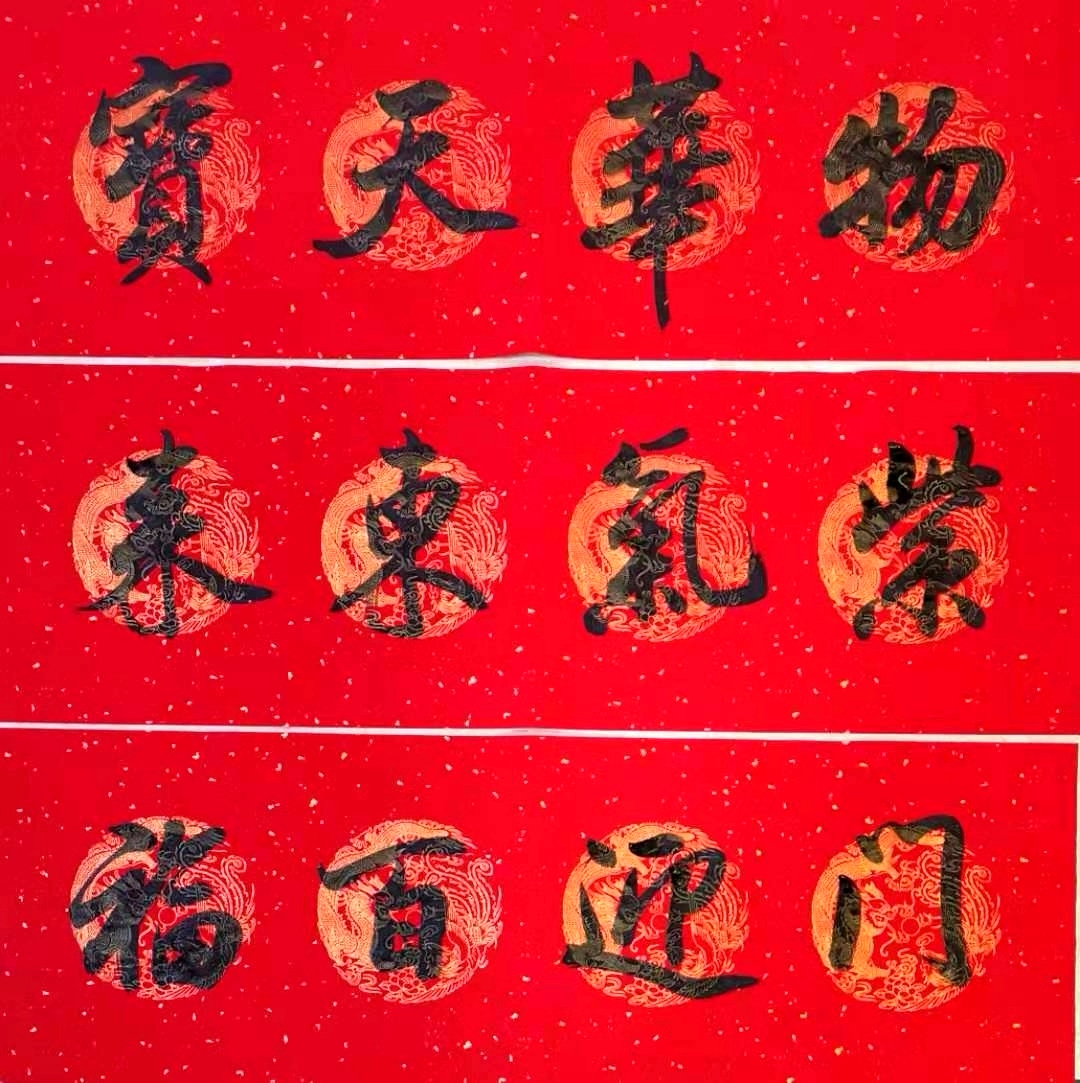 物華天寶
紫氣東来
门迎百福